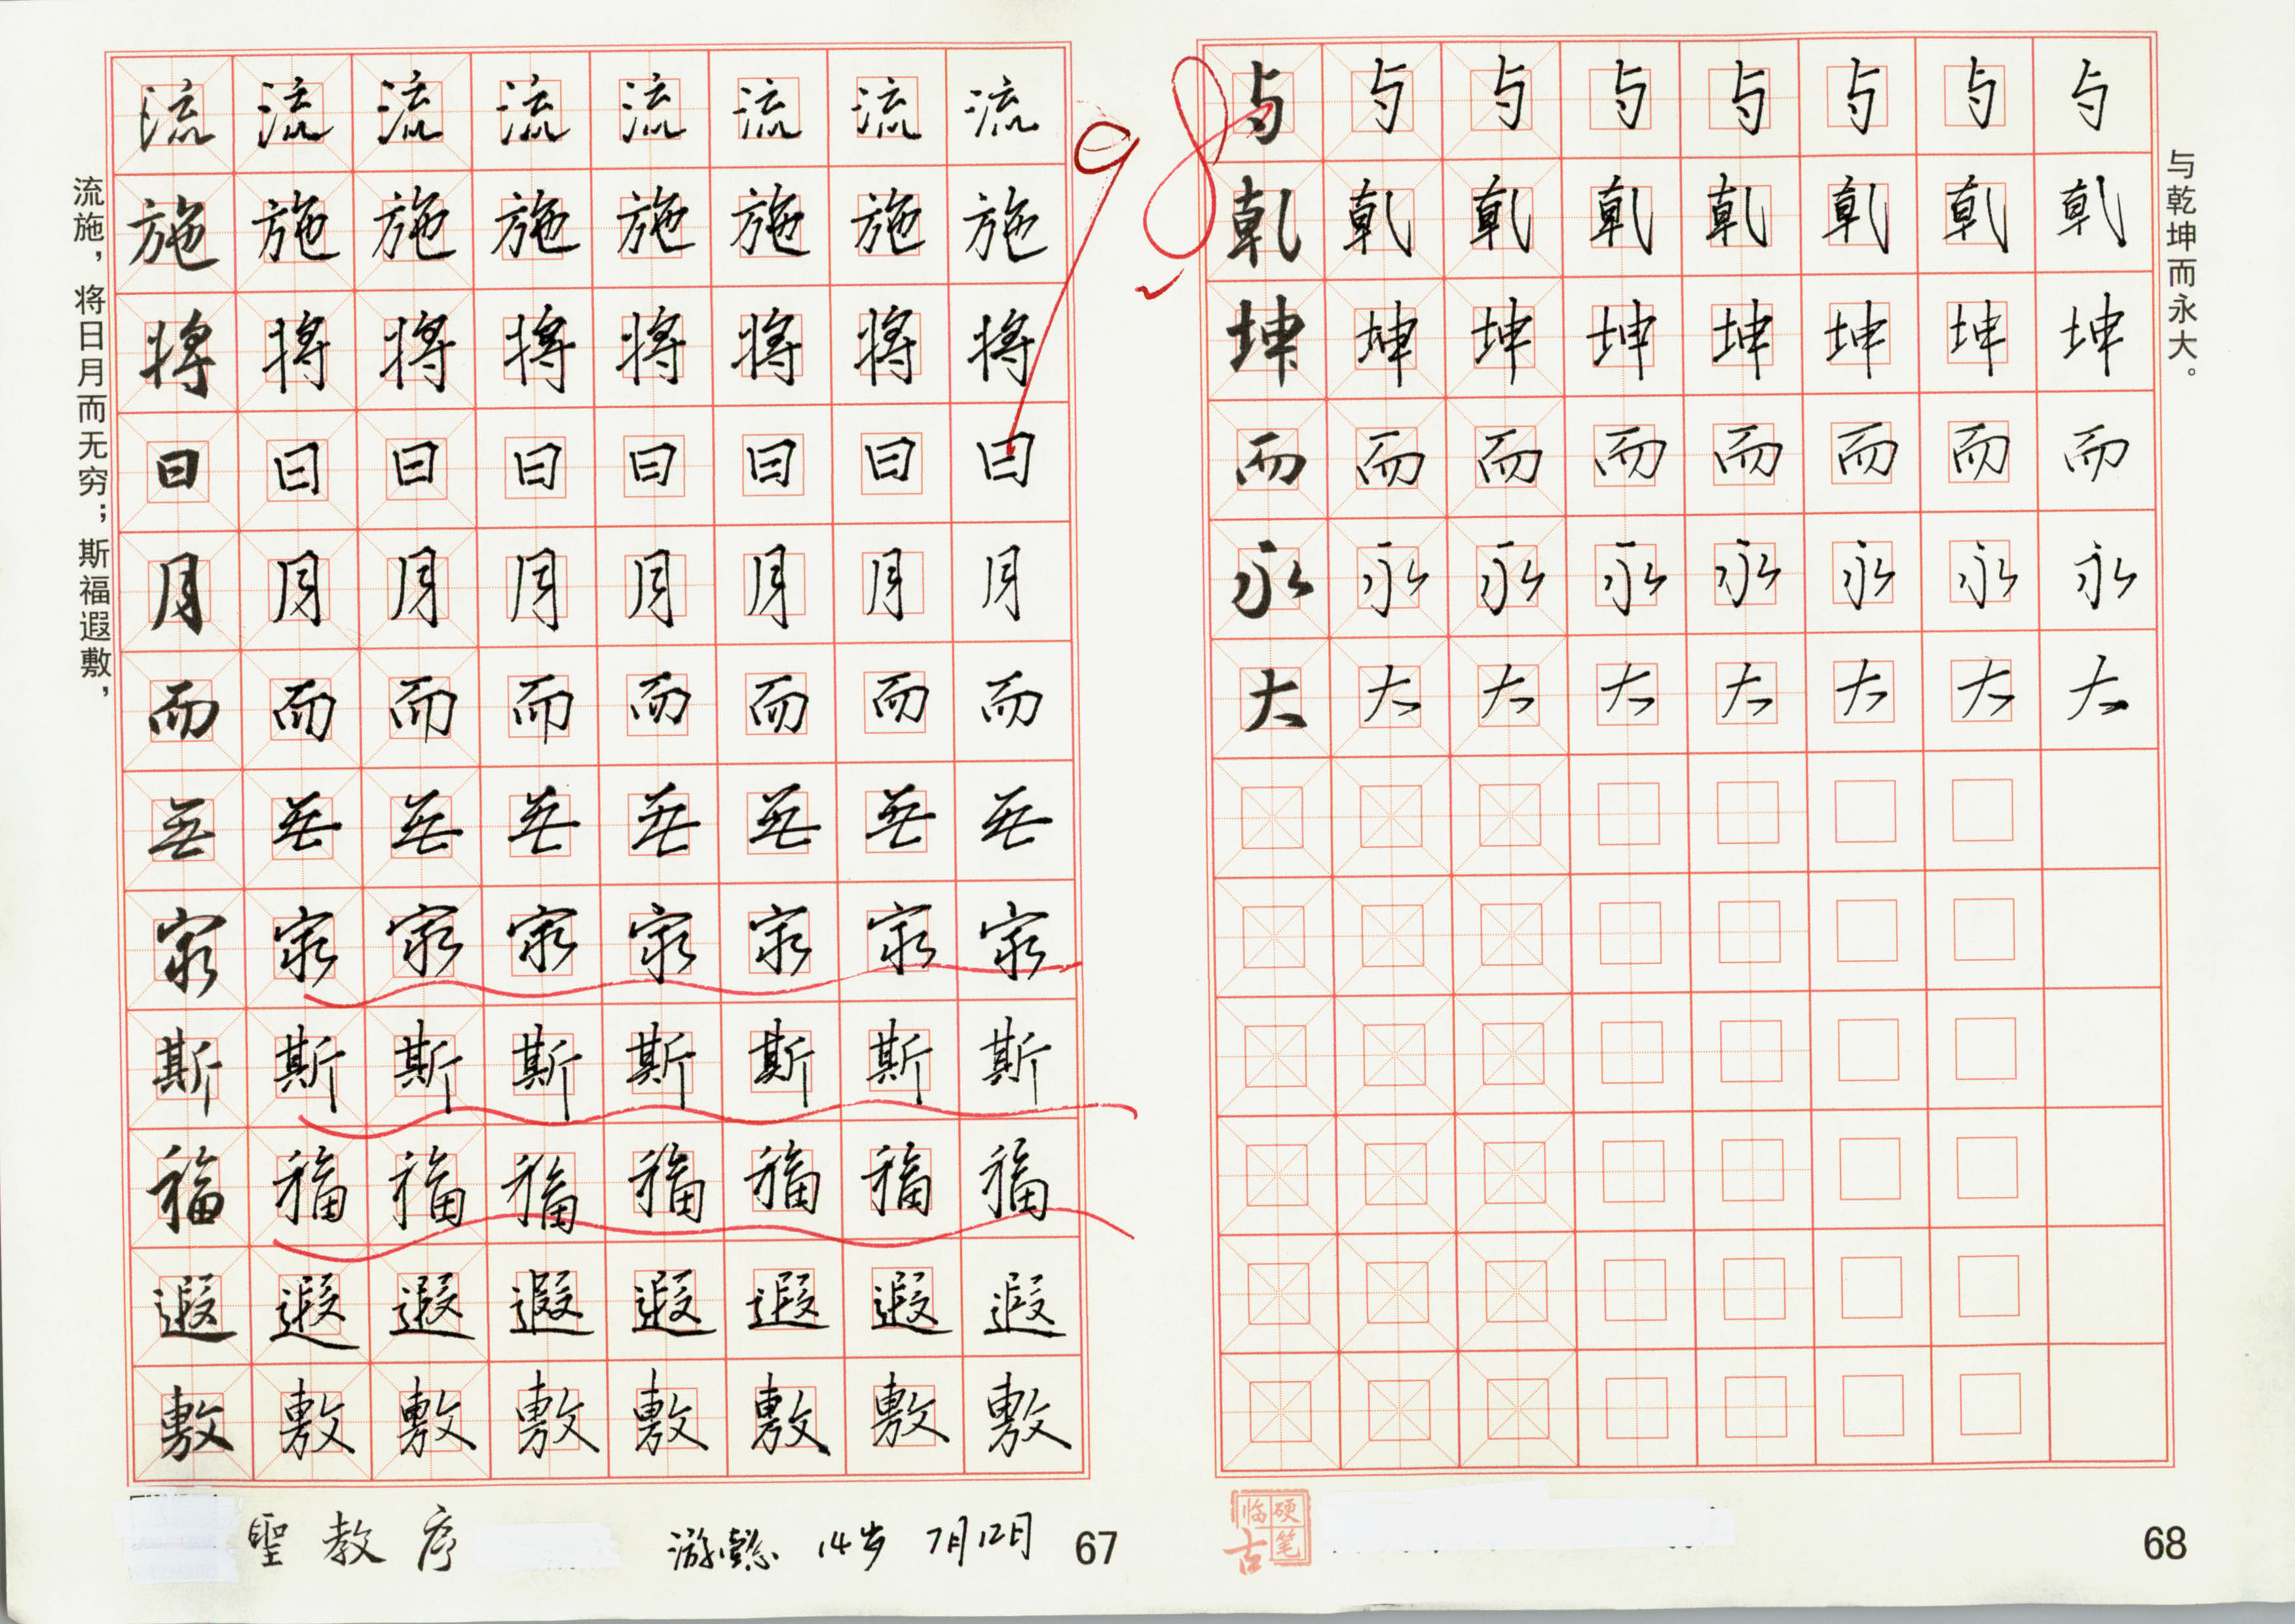 流施，将日月而无穷；斯福遐敷，
流流流流流流流流
施施施施施施施施
将将将将将将将将
日日日日日日日日
月月月月月月月月
而而而而而而而而
無无无无无无无无
穷穷穷穷穷穷穷穷
斯斯斯斯斯斯斯斯
福福福福福福福福
遐遐遐遐遐遐遐遐
敷敷敷敷敷敷敷敷
聖教序
14岁 7月12日
67
98
与与与与与与与与
乾乾乾乾乾乾乾乾
坤坤坤坤坤坤坤坤
而而而而而而而而
永永永永永永永永
大大大大大大大大
与乾坤而永大。
硬笔临古
68